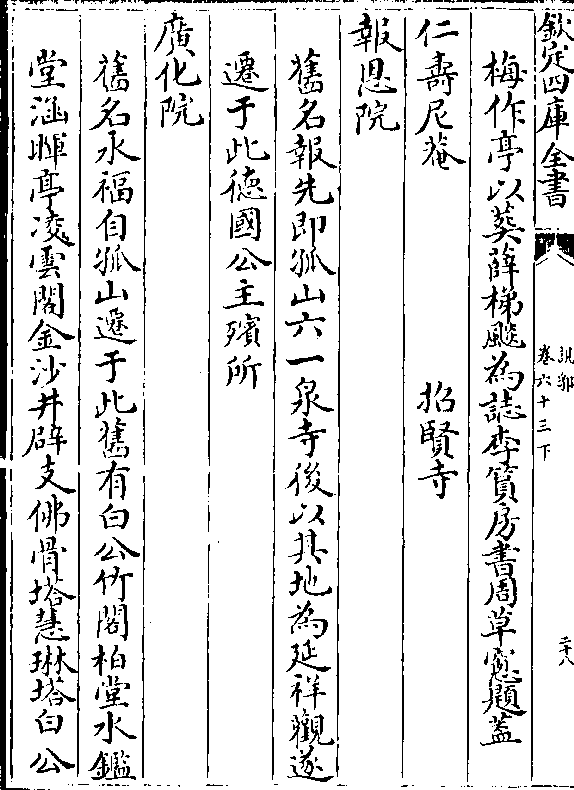 欽定四庫全書
說郛
卷六十三下
二十八
梅作亭以葵薛梯飈為誌李篔房書周草窻題蓋
仁壽尼菴 招賢寺
報恩院
舊名報先即孤山六一泉寺後以其地為延祥觀遂
遷于此德國公主殯所
廣化院
舊名永福自孤山遷于此舊有白公竹閣柏堂水鑑
堂涵暉亭凌雲閣金沙井辟支佛骨塔慧琳塔白公